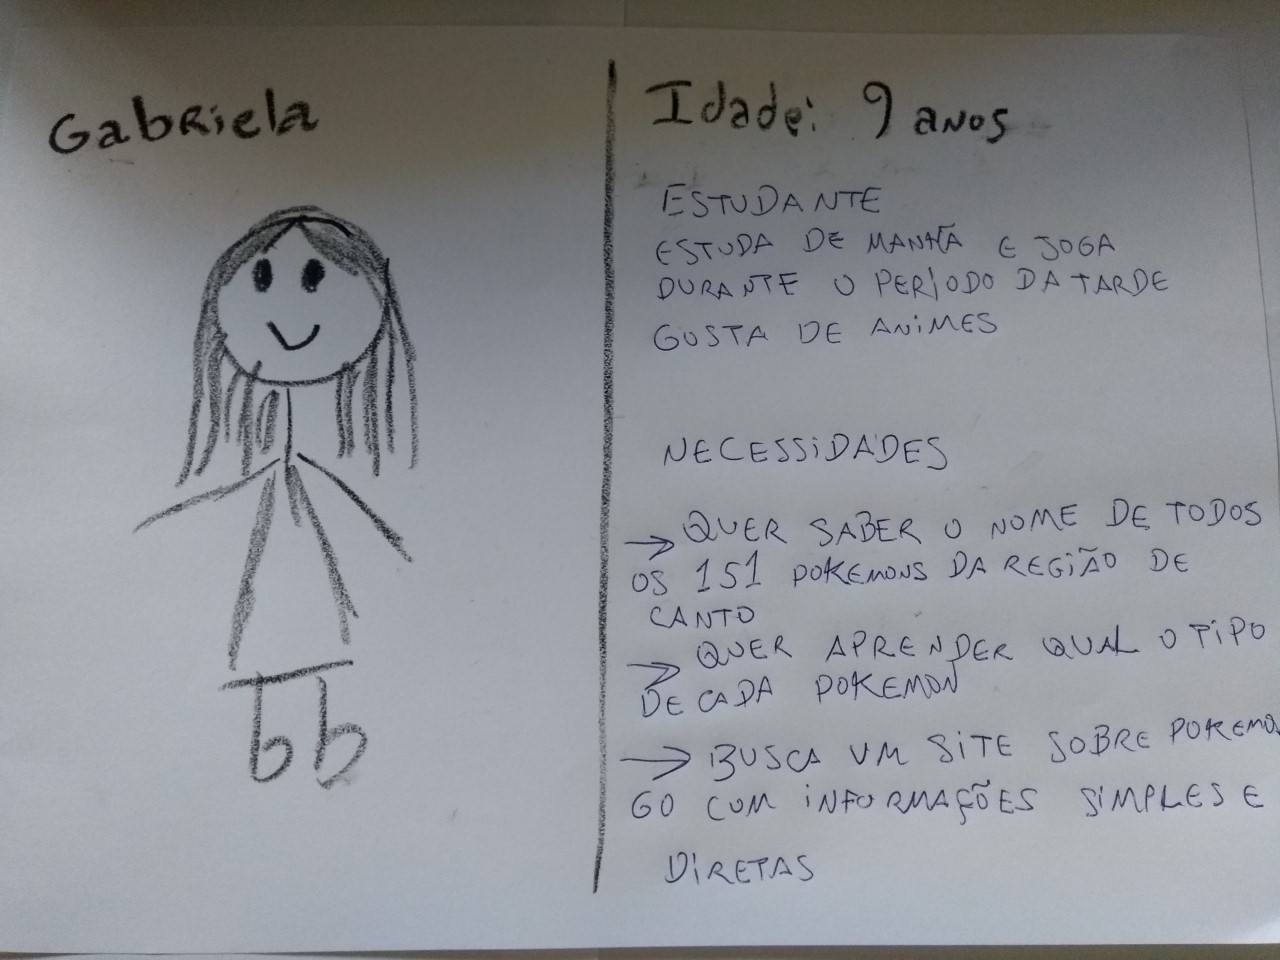 Gabriela
Idade: 9 anos
ESTUDANTE
ESTUDA DE MANHÃ E JOGA
DURANTE O PERÍODO DA TARDE
GOSTA DE ANIMES
NECESSIDADES
→ QUER SABER O NOME DE TODOS
OS 151 POKEMONS DA REGIÃO DE
CANTO
→ QUER APRENDER QUAL O TIPO
DE CADA POKEMON
→ BUSCA UM SITE SOBRE POKEMO
GO COM INFORMAÇÕES SIMPLES E
DIRETAS